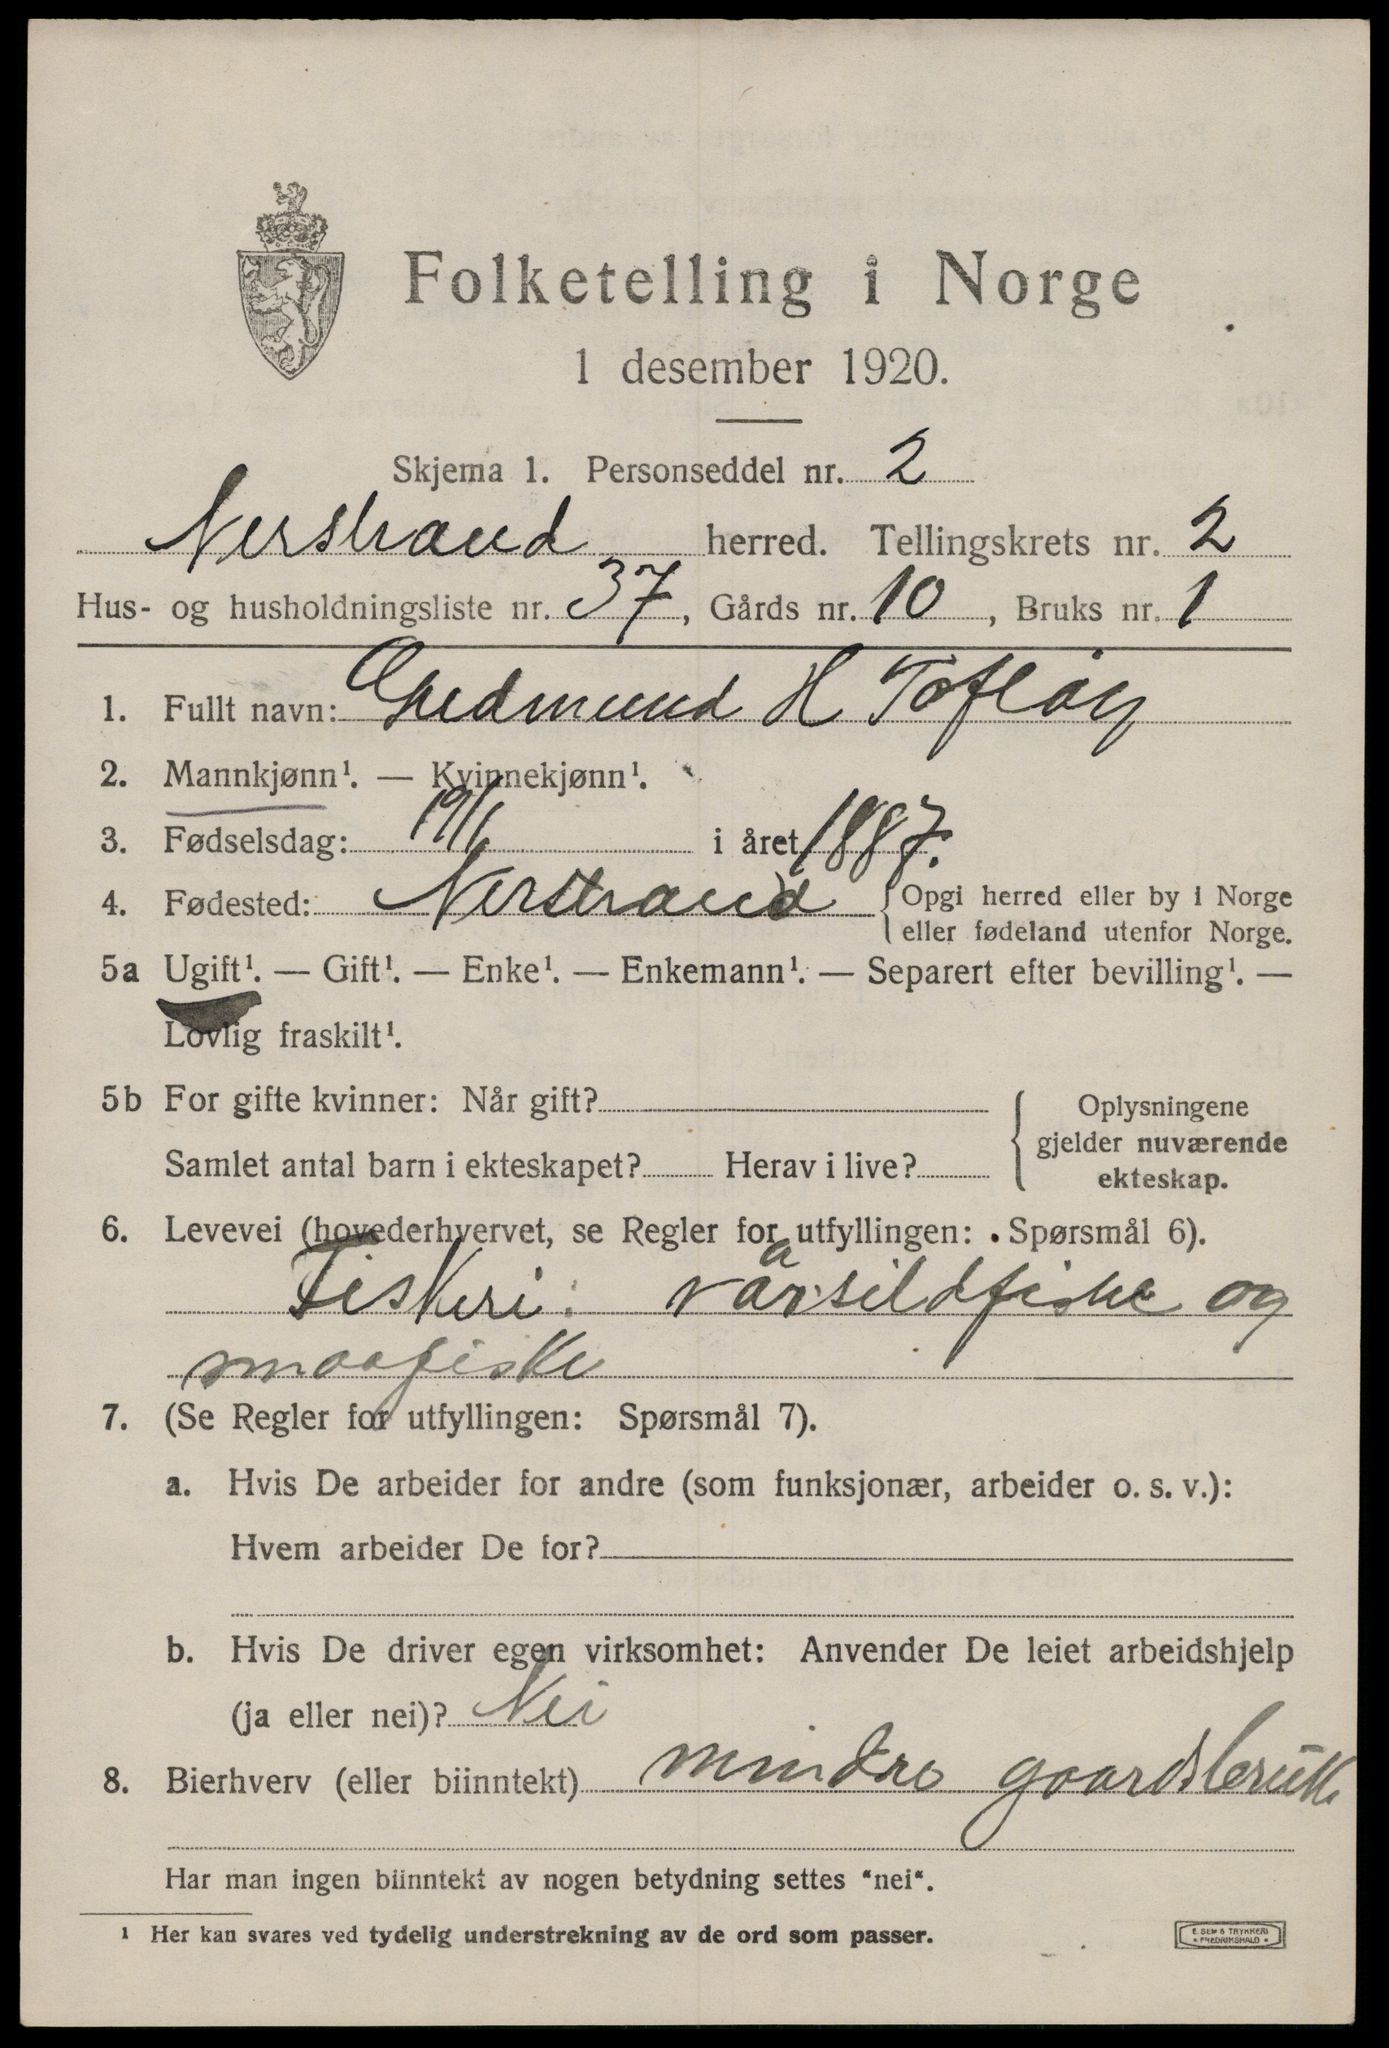 Folketelling i Norge
1 desember 1920.
Skjema 1. Personseddel nr. 2
Nerstrand herred. Tellingskrets nr. 2
Hus- og husholdningsliste nr. 37, Gårds nr. 10, Bruks nr. 1
1. Fullt navn: Gudmund H Tofløy
2. Mannkjønn¹. — Kvinnekjønn¹.
3. Fødselsdag: 19/1 i året 1887.
4. Fødested: Nerstrand { Opgi herred eller by i Norge
eller fødeland utenfor Norge.
5a Ugift¹. — Gift¹. — Enke¹. — Enkemann¹. — Separert efter bevilling¹. —
Lovlig fraskilt¹.
5b For gifte kvinner: Når gift?
Samlet antal barn i ekteskapet? Herav i live?
{ Oplysningene
gjelder nuværende
ekteskap.
6. Levevei (hovederhvervet, se Regler for utfyllingen: Spørsmål 6).
Fiskeri: vaarsildfiske og
smaafiske
7. (Se Regler for utfyllingen: Spørsmål 7).
a. Hvis De arbeider for andre (som funksjonær, arbeider o. s. v.):
Hvem arbeider De for?
b. Hvis De driver egen virksomhet: Anvender De leiet arbeidshjelp
(ja eller nei)? Nei
8. Bierhverv (eller biinntekt) mindre gaardsbruk
Har man ingen biinntekt av nogen betydning settes "nei".
¹ Her kan svares ved tydelig understrekning av de ord som passer.
E. SEM'S TRYKKERI
FREDRIKSHALD